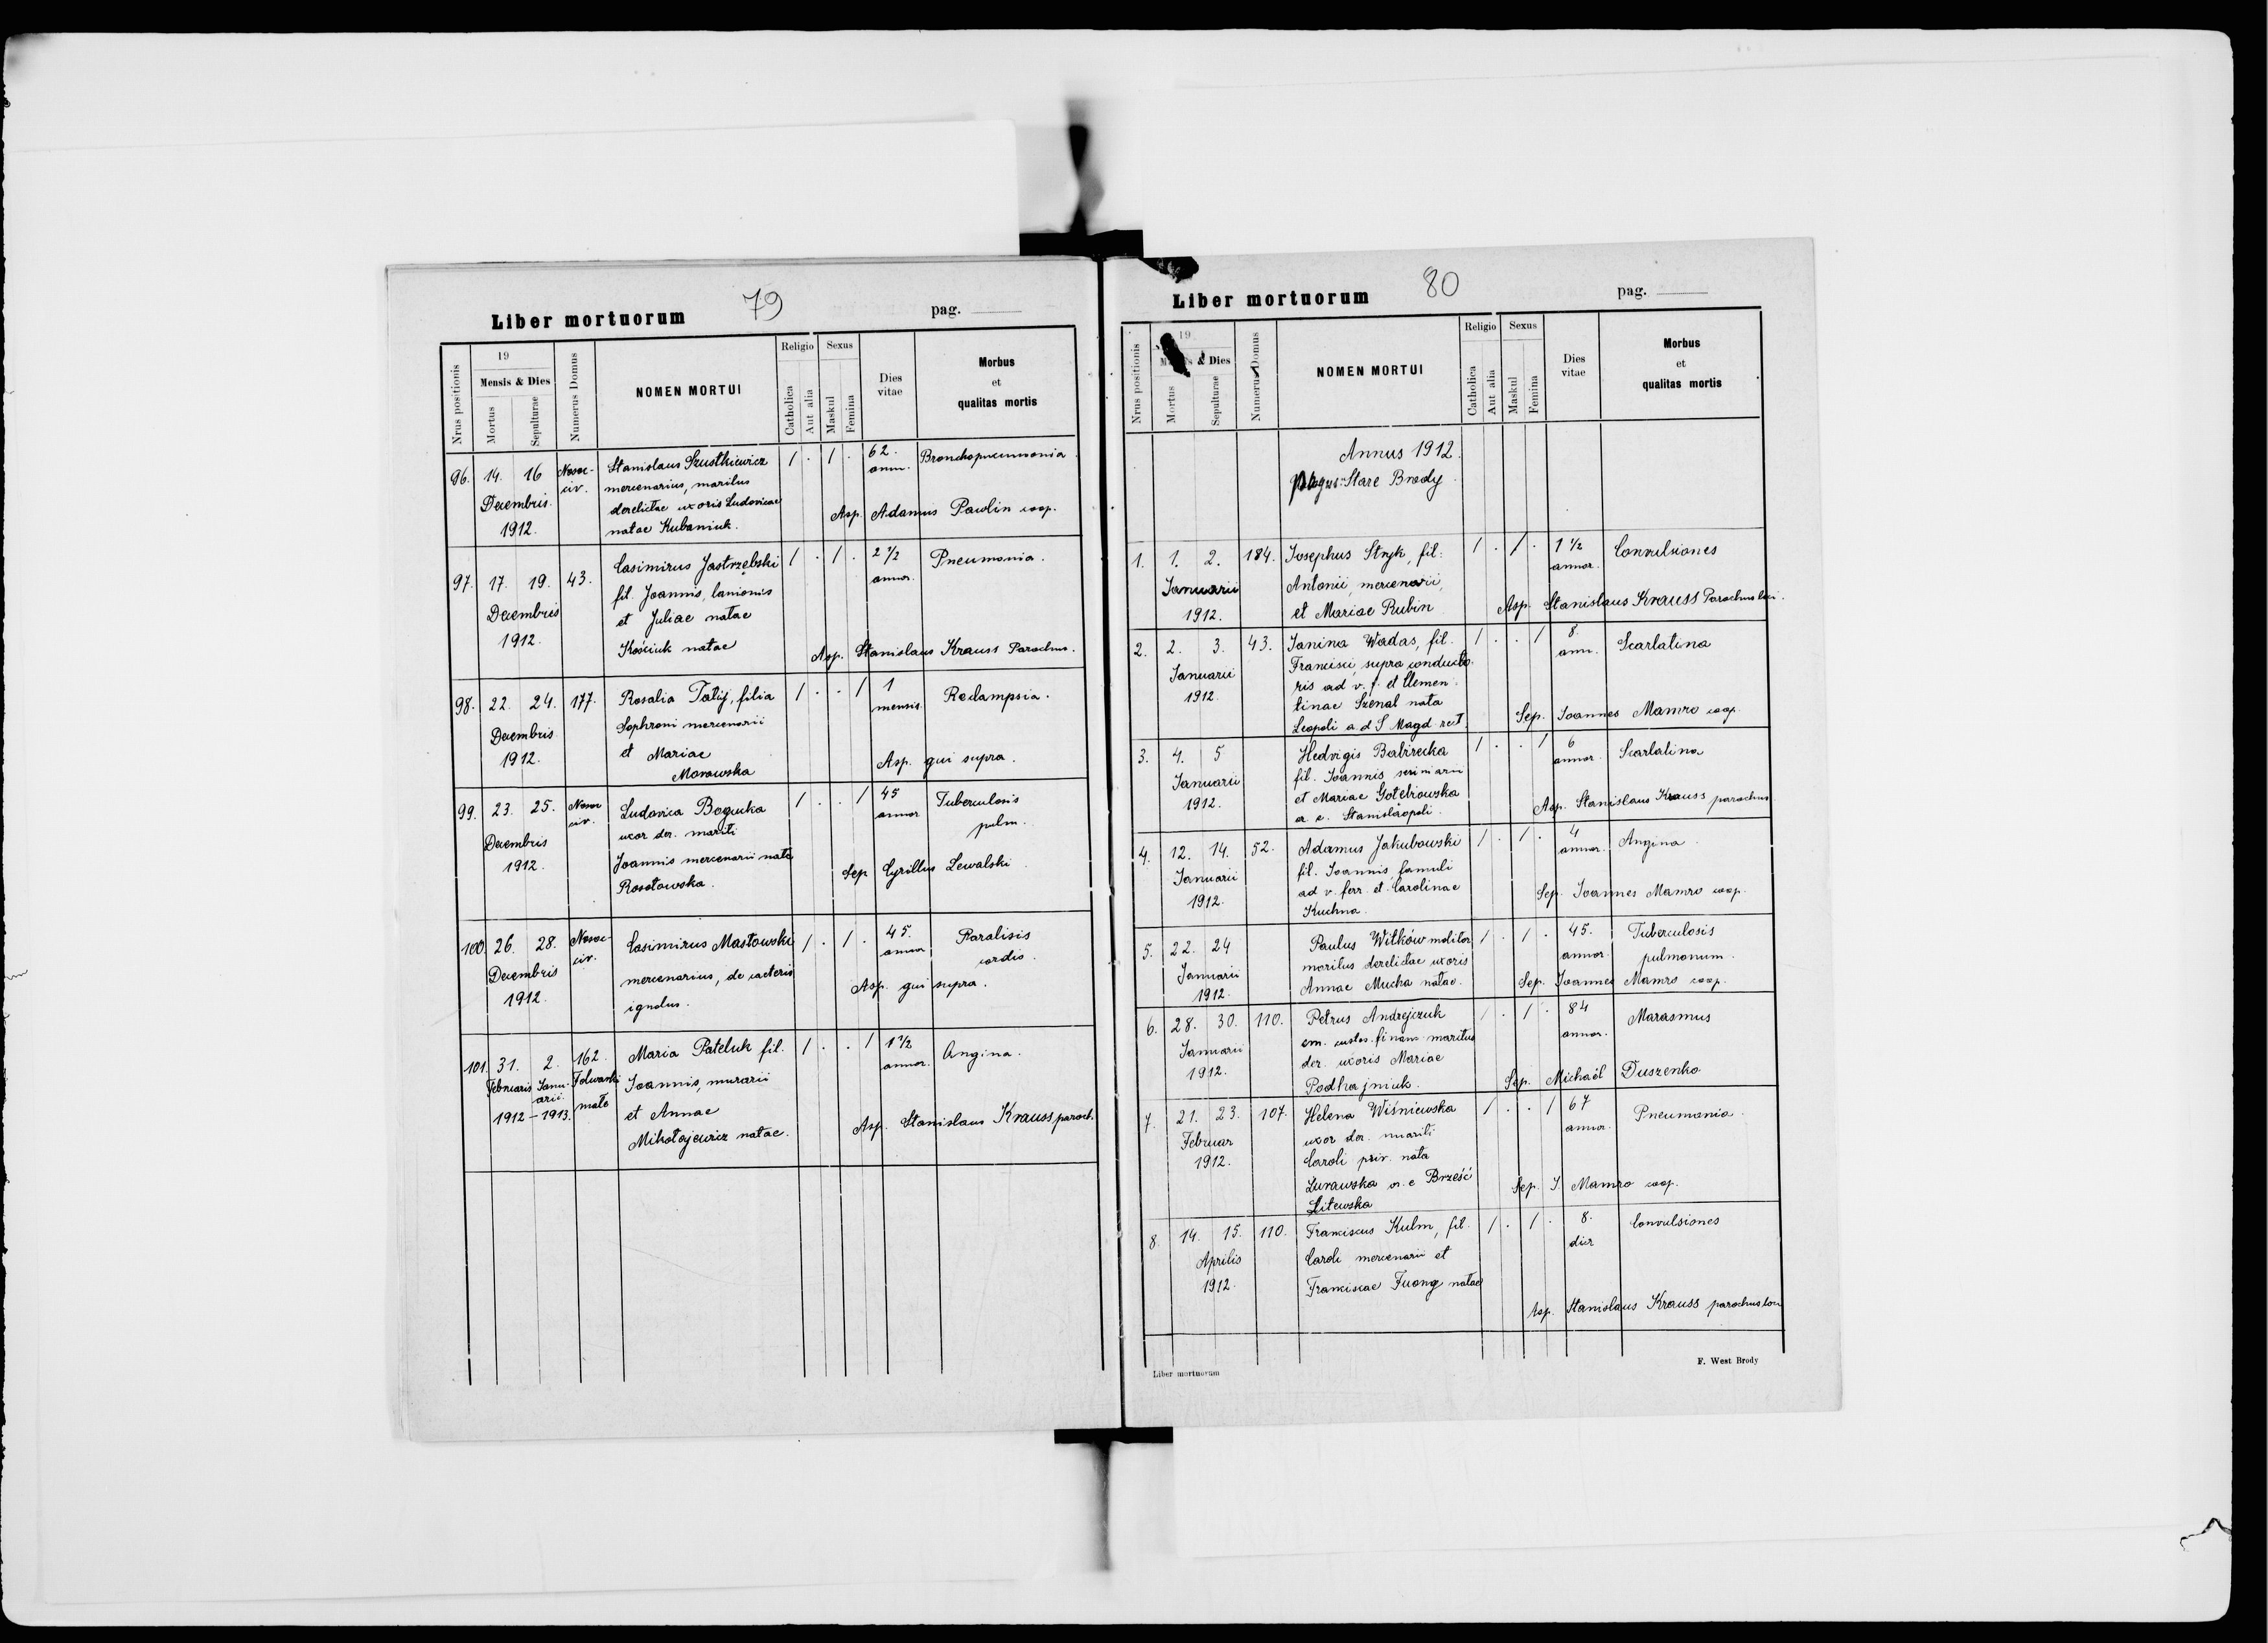 79
Liber mortuorum pag.
Nrus positionis
19
Mensis & Dies
Mortus
Sepulturae
Numerus Domus
NOMEN MORTUI
Religio
Catholica
Aut alia
Sexus
Maskul
Femina
Dies
vitae
Morbus
et
qualitas mortis
96. 14. 16 Nosoc- Stanislaus Szustkiewicz 1 . 1 . 62. Bronchopneumonia
civ. mercenarius, maritus annor.
Decembris derelictae uxoris Ludovicae Asp. Adamus Pawlin coop.
1912. natae Kubaniuk.
97. 17. 19. 43. Casimirus Jastrzębski 1 . 1 . 2 1/2 Pneumonia.
fil. Joannis, lanionis annor.
Decembris et Juliae natae
1912. Kościuk natae Asp. Stanislaus Krauss Parochus.
98. 22. 24. 177. Rosalia Tatij, filia 1 . . 1 1 Reclampsia.
Sophroni mercenarii mensis
Decembris et Mariae
1912. Morawska Asp. qui supra.
99. 23. 25. Nosoc Ludovica Bogucka 1 . . 1 45 Tuberculosis
civ. uxor der. mariti annor pulm.
Decembris Joannis mercenarii nata
1912. Rosołowska. Sep Cyrillus Lewalski
100. 26. 28. Nosoc- Casimirus Masłowski 1 . 1 . 45. Paralisis
civ. annor cordis.
Decembris mercenarius, de caeteris Asp. qui supra.
1912. ignotus.
101. 31. 2. 162. Maria Pateluk fil. 1 . . 1 1 1/2 Angina.
Februaris Janu- Folwarki Joannis, murarii annor.
arii małe
1912-1913. et Annae
Mikołajewicz natae. Asp. Stanislaus Krauss paroch.
80
Liber mortuorum pag.
Nrus positionis
19
& Dies
Mortus
Sepulturae
Numerus Domus
NOMEN MORTUI
Religio
Catholica
Aut alia
Sexus
Maskul
Femina
Dies
vitae
Morbus
et
qualitas mortis
Annus 1912.
Pagus Stare Brody
1. 1. 2. 184. Josephus Stryk, fil. 1 . 1 . 1 1/2 Convulsiones
Januarii Antonii, mercenarii, annor.
1912. et Mariae Rubin Asp. Stanislaus Krauss Parochus loci.
2. 2. 3. 43. Janina Wadas, fil. 1 . . 1 8. Scarlatina
Francisci supra conducto- ann.
Januarii ris ad v. f. et Clemen-
1912. tinae Szenal nata
Leopoli a d S Magd Sep. Joannes Mamro coop.
3. 4. 5 Hedvigis Babirecka 1 . . 1 6 Scarlatina
Januarii fil. Joannis scriniarii annor.
1912. et Mariae Gołębiowska
a. c. Stanislaopoli. Asp. Stanislaus Krauss parochus
4. 12. 14. 52. Adamus Jakubowski 1 . 1 . 4 Angina.
Januarii fil. Joannis famuli annor.
1912. ad v. ferr. et Carolinae
Kuchna. Sep. Joannes Mamro coop.
5. 22. 24 Paulus Witków molitor 1 . 1 . 45. Tuberculosis
Januarii maritus derelictae uxoris annor. pulmonum.
1912. Annae Mucha natae. Sep. Joannes Mamro coop.
6. 28. 30. 110. Petrus Andrejczuk 1 . 1 . 84 Marasmus
Januarii em. custos. finans maritus annor.
1912. der. uxoris Mariae
Podhajniuk. Sep. Michaël Duszenko
7. 21. 23. 107. Helena Wiśniewska 1 . . 1 67 Pneumonia.
Februar uxor der. mariti annor.
1912. Caroli priv. nata
Zurawska or. e Brześć Sep. J. Mamro coop.
Litewska
8. 14. 15. 110. Franciscus Kulm, fil. 1 . 1 . 8. Convulsiones
Aprilis Caroli mercenarii et dier
1912. Franciscae Fuong natae
Asp. Stanislaus Krauss parochus loci
Liber mortuorum F. West Brody